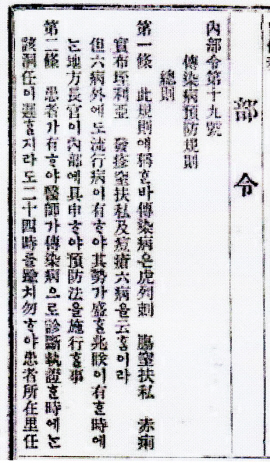 部 令
內部令第十九號
傳染病預防規則
總則
第一條 此規則에稱ᄒᆞᆫ바傳染病은虎列刺 腸窒扶私 赤痢
實布垤利亞 發疹窒扶私及痘瘡六病을云홈이라
但六病外에도流行病이有ᄒᆞ야其勢가盛ᄒᆞᆯ兆朕이有ᄒᆞᆫ時에
는地方長官이內部에具申ᄒᆞ야預防法을施行ᄒᆞᆯ事
第二條 患者가有ᄒᆞ야醫師가傳染病으로診斷執證ᄒᆞᆫ時에는
該洞任이遲ᄒᆞᆯ지라도二十四時를踰치勿ᄒᆞ야患者所在里任